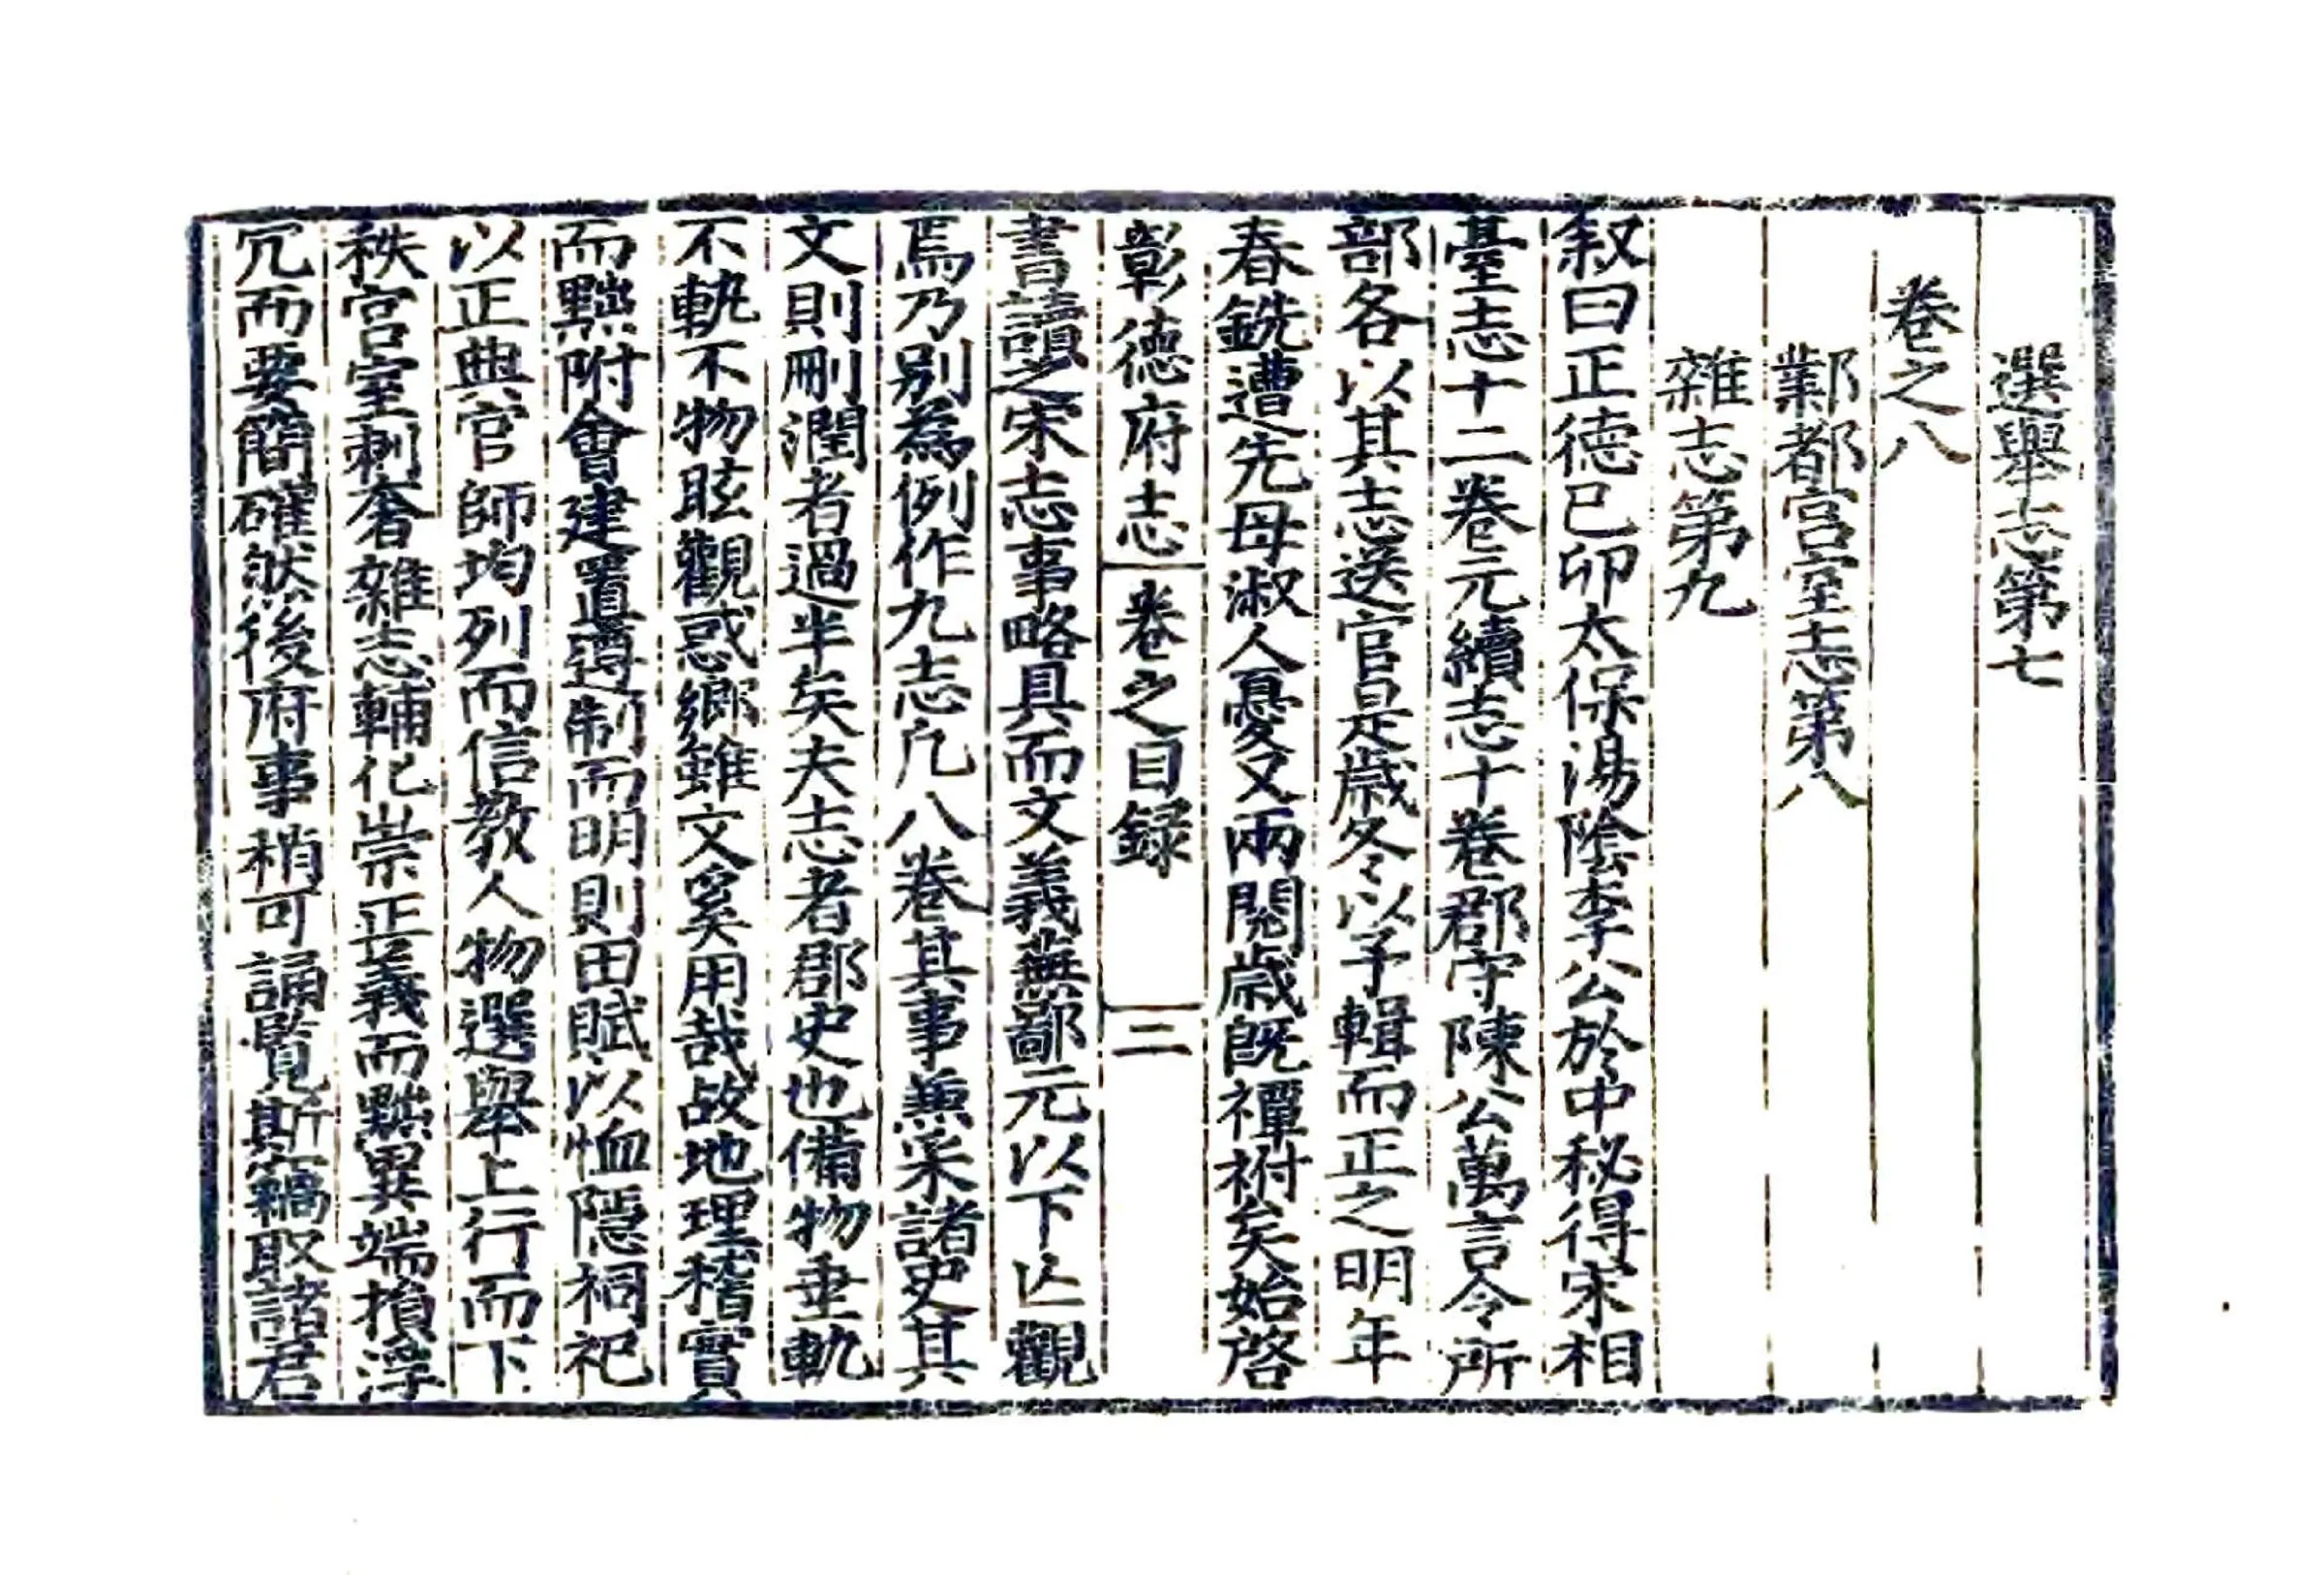 選舉志第七
卷之八
鄴都宫室志第八
雜志第九
叙曰正德己卯太保湯隂李公於中秘得宋相
臺志十二卷元續志十卷郡守陳公萬言令所
部各以其志送官是歲冬以予輯而正之明年
春銑遭先母淑人憂又兩閱歲旣禫祔矣始啓
彰德府志 卷之目録 二
書讀之宋志事略具而文義蕪鄙元以下亡觀
焉乃别為例作九志凡八卷其事兼采諸史其
文則刪潤者過半矣夫志者郡史也備物垂軌
不軌不物眩觀惑鄉雖文奚用哉故地理稽實
而黜附會建置遵制而明則田賦以恤隱祠祀
以正典官師均列而信教人物選舉上行而下
秩宫室刺奢雜志輔化崇正義而黜異端損浮
冗而要簡確然後府事稍可誦覽斯藳取諸君